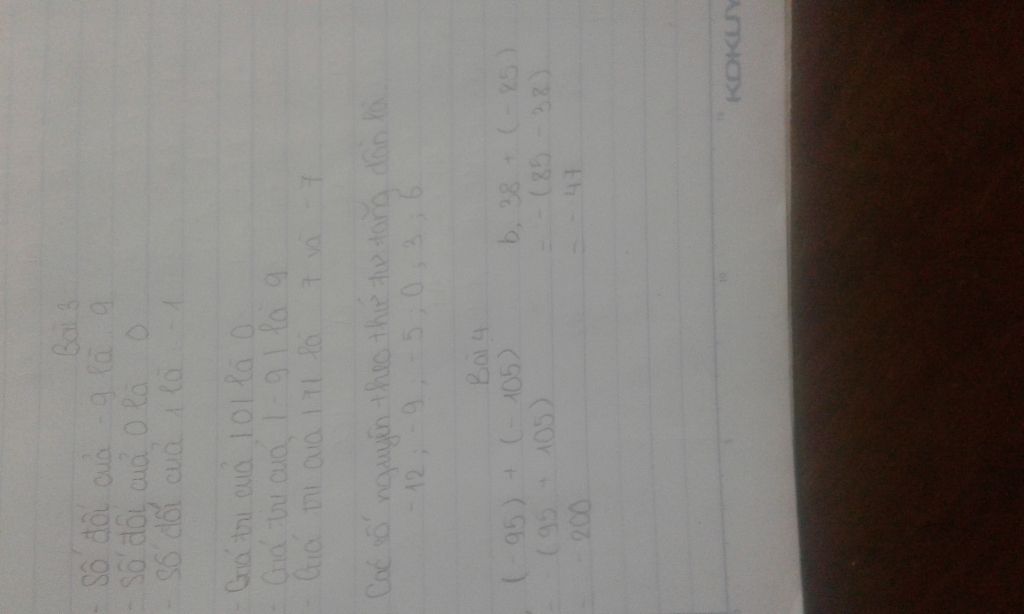 Bài 3
- Số đối của - 9 là 9
- Số đối của 0 là 0
- Số đối của 1 là - 1
- Giá trị của |0| là 0
- Giá trị của |- 9| là 9
- Giá trị của |7| là 7 và - 7
Các số nguyên theo thứ tự tăng dần là
- 12 ; - 9 ; - 5 ; 0 ; 3 ; 6
Bài 4
(- 95) + (- 105)
= - (95 + 105)
= - 200
b, 38 + (- 85)
= - (85 - 38)
= - 47
"KOKUY